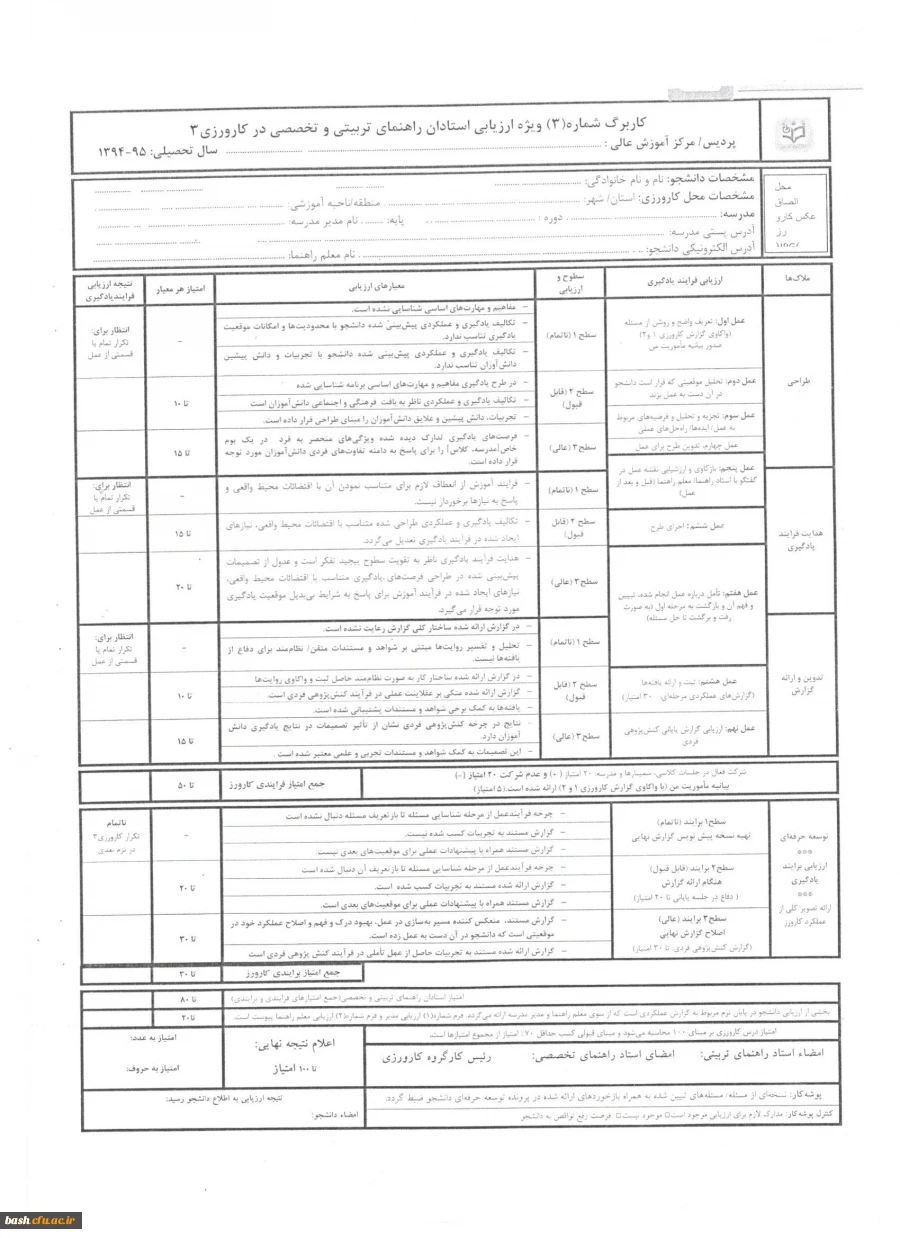 کاربرگ شماره(۳) ویژه ارزیابی استادان راهنمای تربیتی و تخصصی در کارورزی ۳
پردیس/ مرکز آموزش عالی : سال تحصیلی: ۹۵-۱۳۹۴
محل
الصاق
عکس کارو
رز
مشخصات دانشجو: نام و نام خانوادگی:
مشخصات محل کارورزی: استان/ شهر: منطقه/ناحیه آموزشی:
مدرسه: دوره : پایه: نام مدیر مدرسه:
آدرس پستی مدرسه:
آدرس الکترونیکی دانشجو: نام معلم راهنما:
ملاک‌ها
ارزیابی فرایند یادگیری
سطوح و
ارزیابی
معیارهای ارزیابی
امتیاز هر معیار
نتیجه ارزیابی
فرایندیادگیری
طراحی
عمل اول: تعریف واضح و روشن از مسئله
(واکاوی گزارش کارورزی ۱ و ۲)
صدور بیانیه مأموریت من
سطح ۱ (ناتمام)
– مفاهیم و مهارت‌های اساسی شناسایی نشده است.
– تکالیف یادگیری و عملکردی پیش‌بینی شده دانشجو با محدودیت‌ها و امکانات موقعیت
یادگیری تناسب ندارد.
– تکالیف یادگیری و عملکردی پیش‌بینی شده دانشجو با تجربیات و دانش پیشین
دانش‌آوران تناسب ندارد.
–
انتظار برای:
تکرار تمام یا
قسمتی از عمل
عمل دوم: تحلیل موقعیتی که قرار است دانشجو
در آن دست به عمل بزند
عمل سوم: تجزیه و تحلیل و فرضیه‌های مربوط
به عمل/ ایده‌ها/ راه‌حل‌های عملی
سطح ۲ (قابل
قبول)
– در طرح یادگیری مفاهیم و مهارت‌های اساسی برنامه شناسایی شده
– تکالیف یادگیری و عملکردی ناظر به بافت فرهنگی و اجتماعی دانش‌آموزان است
– تجربیات، دانش پیشین و علایق دانش‌آموزان را مبنای طراحی قرار داده است.
تا ۱۰
عمل چهارم: تدوین طرح برای عمل
سطح ۳ (عالی)
– فرصت‌های یادگیری تدارک دیده شده ویژگی‌های منحصر به فرد در یک بوم
خاص[مدرسه، کلاس] را برای پاسخ به دامنه تفاوت‌های فردی دانش‌آموزان مورد توجه
قرار داده است.
تا ۱۵
هدایت فرایند
یادگیری
عمل پنجم: بازکاوی و ارزشیابی نقشه عمل در
گفتگو با استاد راهنما/ معلم راهنما (قبل و بعد از
عمل)
سطح ۱ (ناتمام)
– فرایند آموزش از انعطاف لازم برای متناسب نمودن آن با اقتضائات محیط واقعی و
پاسخ به نیازها برخوردار نیست.
–
انتظار برای:
تکرار تمام یا
قسمتی از عمل
عمل ششم: اجرای طرح
سطح ۲ (قابل
قبول)
– تکالیف یادگیری و عملکردی طراحی شده متناسب با اقتضائات محیط واقعی، نیازهای
ایجاد شده در فرآیند یادگیری تعدیل می‌گردد.
تا ۱۵
عمل هفتم: تأمل درباره عمل انجام شده، تبیین
و فهم آن و بازگشت به مرحله اول (به صورت
رفت و برگشت تا حل مسئله)
سطح ۳ (عالی)
– هدایت فرآیند یادگیری ناظر به تقویت سطوح پیچید تفکر است و عدول از تصمیمات
پیش‌بینی شده در طراحی فرصت‌های یادگیری متناسب با اقتضائات محیط واقعی،
نیازهای ایجاد شده در فرآیند آموزش برای پاسخ به شرایط بی‌بدیل موقعیت یادگیری
مورد توجه قرار می‌گیرد.
تا ۲۰
تدوین و ارائه
گزارش
سطح ۱ (ناتمام)
– در گزارش ارائه شده ساختار کلی گزارش رعایت نشده است.
– تحلیل و تفسیر روایت‌ها مبتنی بر شواهد و مستندات متقن/ نظام‌مند برای دفاع از
یافته‌ها نیست.
–
انتظار برای:
تکرار تمام یا
قسمتی از عمل
عمل هشتم: ثبت و ارائه یافته‌ها
(گزارش‌های عملکردی مرحله‌ای، ۳۰ امتیاز)
سطح ۲ (قابل
قبول)
– در گزارش ارائه شده ساختار کار به صورت نظام‌مند حاصل ثبت و واکاوی روایت‌ها
– گزارش ارائه شده متکی بر عقلانیت عملی در فرآیند کنش‌پژوهی فردی است.
– یافته‌ها به کمک برخی شواهد و مستندات پشتیبانی شده است.
تا ۱۰
عمل نهم: ارزیابی گزارش پایانی کنش‌پژوهی
فردی
سطح ۳ (عالی)
– نتایج در چرخه کنش‌پژوهی فردی نشان از تأثیر تصمیمات در نتایج یادگیری دانش
آموزان دارد.
– این تصمیمات به کمک شواهد و مستندات تجربی و علمی معتبر شده است .
تا ۱۵
شرکت فعال در جلسات کلاسی، سمینارها و مدرسه: ۲۰ امتیاز (+) و عدم شرکت ۲۰ امتیاز (-)
بیانیه مأموریت من (با واکاوی گزارش کارورزی ۱ و ۲) ارائه شده است.(۵ امتیاز)
جمع امتیاز فرایندی کارورز
تا ۵۰
توسعه حرفه‌ای
***
ارزیابی برایند
یادگیری
***
ارائه تصویر کلی از
عملکرد کارورز
سطح۱ برایند (ناتمام)
تهیه نسخه پیش نویس گزارش نهایی
– چرخه فرآیندعمل از مرحله شناسایی مسئله تا بازتعریف مسئله دنبال نشده است
– گزارش مستند به تجربیات کسب شده نیست.
– گزارش مستند همراه با پیشنهادات عملی برای موقعیت‌های بعدی نیست.
–
ناتمام
تکرار کارورزی۳
در ترم بعدی
سطح۲ برایند (قابل قبول)
هنگام ارائه گزارش
( دفاع در جلسه پایانی تا ۲۰ امتیاز)
– چرخه فرآیندعمل از مرحله شناسایی مسئله تا بازتعریف آن دنبال شده است
– گزارش ارائه شده مستند به تجربیات کسب شده است.
– گزارش مستند همراه با پیشنهادات عملی برای موقعیت‌های بعدی است.
تا ۲۰
سطح۳ برایند (عالی)
اصلاح گزارش نهایی
(گزارش کنش‌پژوهی فردی: تا ۳۰ امتیاز)
– گزارش مستند، منعکس کننده مسیر به‌سازی در عمل، بهبود درک و فهم و اصلاح عملکرد خود در
موقعیتی است که دانشجو در آن دست به عمل زده است.
– گزارش ارائه شده مستند به تجربیات حاصل از عمل تأملی در فرآیند کنش پژوهی فردی است
تا ۳۰
جمع امتیاز برایندی کارورز
تا ۳۰
امتیاز استادان راهنمای تربیتی و تخصصی(جمع امتیازهای فرایندی و برایندی)
تا ۸۰
بخشی از ارزیابی دانشجو در پایان ترم مربوط به گزارش عملکردی است که از سوی معلم راهنما و مدیر مدرسه ارائه می‌گردد. فرم شماره(۱) ارزیابی مدیر و فرم شماره(۲) ارزیابی معلم راهنما پیوست است.
تا۲۰
امتیاز درس کارورزی بر مبنای ۱۰۰ محاسبه می‌شود و مبنای قبولی کسب حداقل ۷۰٪ امتیاز از مجموع امتیازها است.
امضاء استاد راهنمای تربیتی: امضای استاد راهنمای تخصصی: رئیس کارگروه کارورزی
اعلام نتیجه نهایی:
تا ۱۰۰ امتیاز
امتیاز به عدد:
امتیاز به حروف:
پوشه کار: نسخه‌ای از مسئله/ مسئله‌های تبیین شده به همراه بازخوردهای ارائه شده در پرونده توسعه حرفه‌ای دانشجو ضبط گردد.
کنترل پوشه کار: مدارک لازم برای ارزیابی موجود است□ موجود نیست□ فرصت رفع نواقص به دانشجو
نتیجه ارزیابی به اطلاع دانشجو رسید:
امضاء دانشجو:
bash.cfu.ac.ir